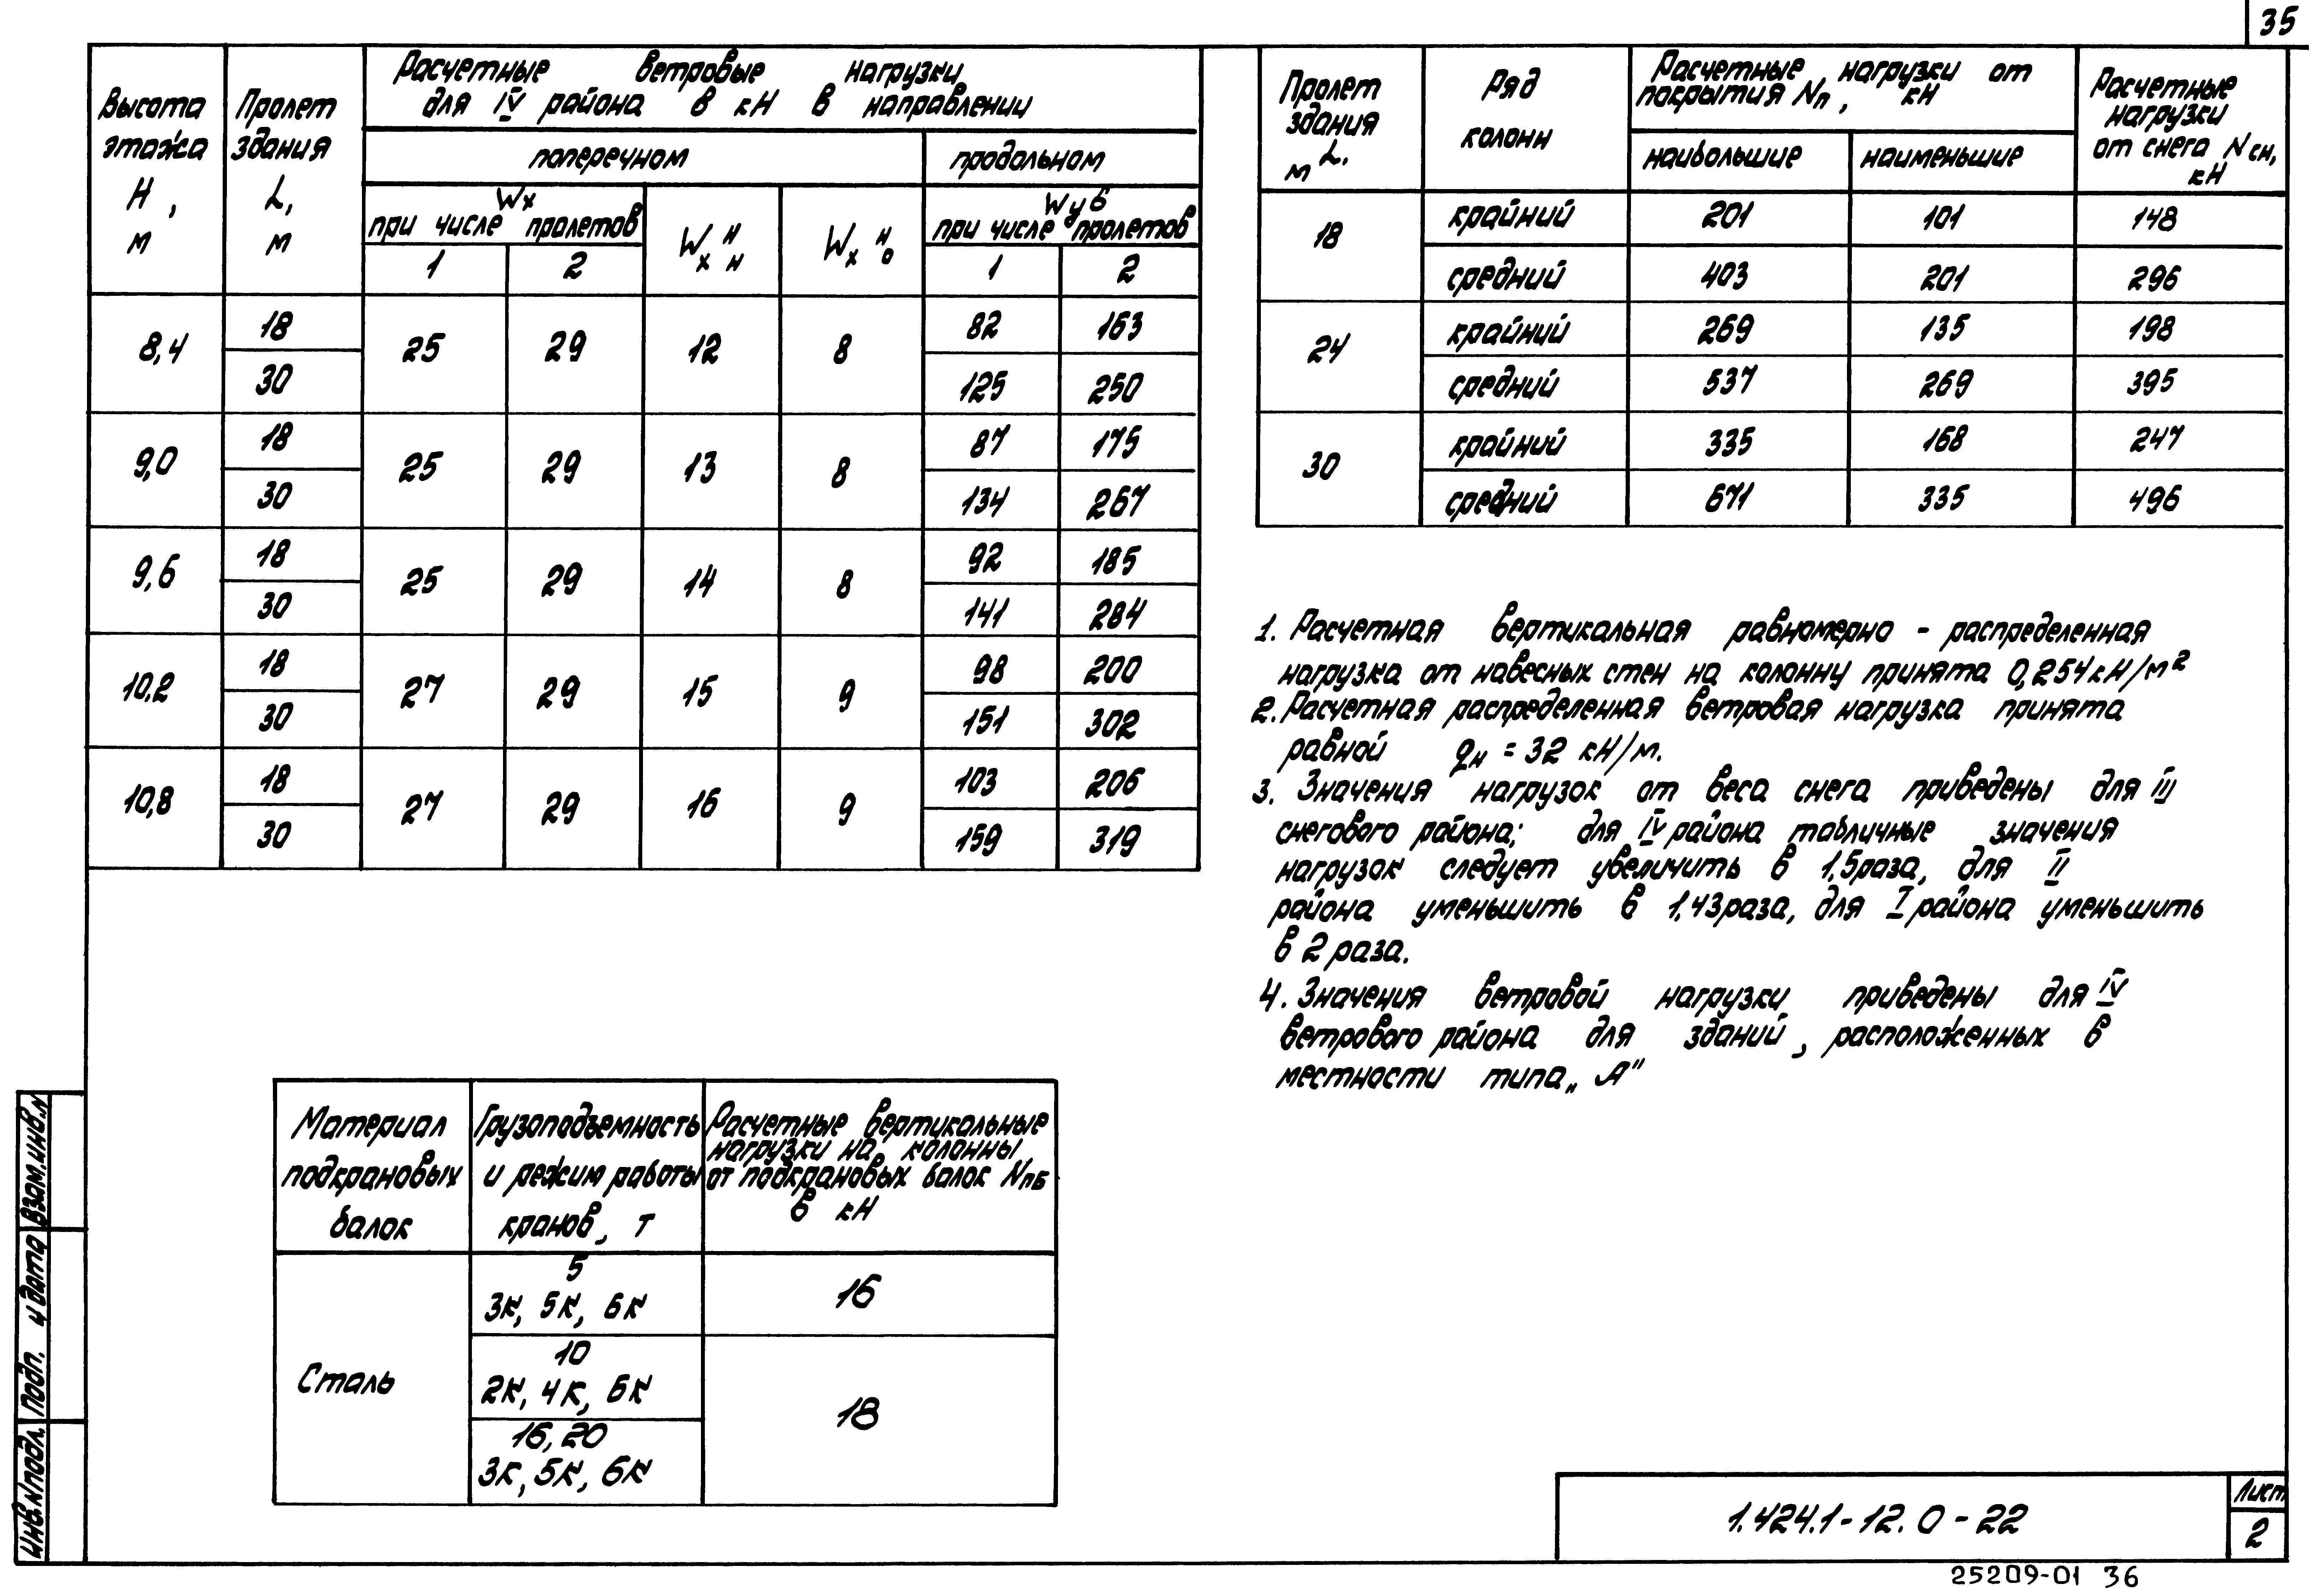 35
Высота этажа H, м | Пролет здания L, м | Расчетные ветровые нагрузки для IV района в кН в направлении
поперечном | продольном
Wx при числе пролетов | Wx н н | Wx н о | Wyб при числе пролетов
1 | 2 | 1 | 2
8,4 | 18 | 25 | 29 | 12 | 8 | 82 | 163
30 | 125 | 250
9,0 | 18 | 25 | 29 | 13 | 8 | 87 | 175
30 | 134 | 267
9,6 | 18 | 25 | 29 | 14 | 8 | 92 | 185
30 | 141 | 284
10,2 | 18 | 27 | 29 | 15 | 9 | 98 | 200
30 | 151 | 302
10,8 | 18 | 27 | 29 | 16 | 9 | 103 | 206
30 | 159 | 319
Пролет здания L, м | Ряд колонн | Расчетные нагрузки от покрытия Nп, кН | Расчетные нагрузки от снега Nсн, кН
наибольшие | наименьшие
18 | крайний | 201 | 101 | 148
средний | 403 | 201 | 296
24 | крайний | 269 | 135 | 198
средний | 537 | 269 | 395
30 | крайний | 335 | 168 | 247
средний | 671 | 335 | 496
1. Расчетная вертикальная равномерно - распределенная
нагрузка от навесных стен на колонну принята 0,254 кН/м²
2. Расчетная распределенная ветровая нагрузка принята
равной qн = 32 кН/м.
3. Значения нагрузок от веса снега приведены для III
снегового района; для IV района табличные значения
нагрузок следует увеличить в 1,5 раза, для II
района уменьшить в 1,43 раза, для I района уменьшить
в 2 раза.
4. Значения ветровой нагрузки приведены для IV
ветрового района для зданий, расположенных в
местности типа „А"
Материал подкрановых балок | Грузоподъемность и режим работы кранов, т | Расчетные вертикальные нагрузки на колонны от подкрановых балок Nпб в кН
Сталь | 5
3К, 5К, 6К | 16
10
2К, 4К, 6К | 18
16, 20
3К, 5К, 6К
Взам. инв. N
Подп. и дата
Инв. N подл.
1.424.1-12.0-22
Лист
2
25209-01 36